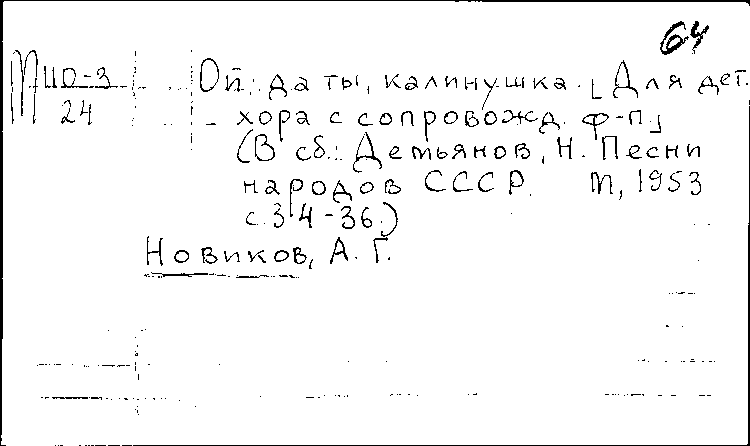 64
М 110-3 Ой, да ты, калинушка. [Для дет.
24 хора с сопровожд. ф-п.]
(В сб.: Демьянов, Н. Песни
народов СССР. М, 1953
с. 34-36.)
Новиков, А. Г.